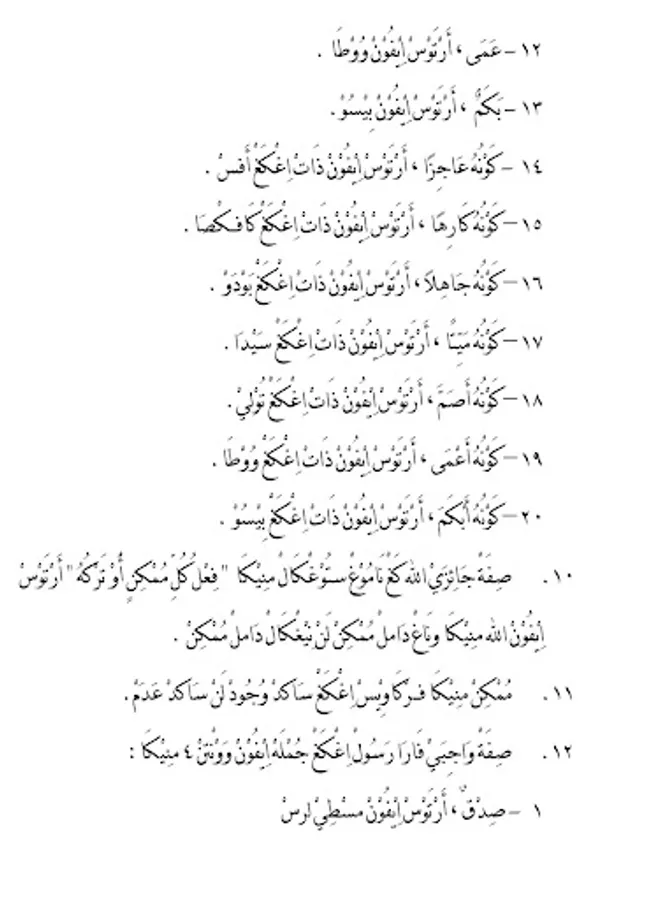 ١٢ – عَمَى ، أَرْتَوْسْ اِيْفُوْنْ وُوْطَا .
١٣ – بَكَمٌ ، أَرْتَوْسْ اِيْفُوْنْ بِيْسُوْ .
١٤ – كَوْنُهُ عَاجِزًا ، أَرْتَوْسْ اِيْفُوْنْ ذَاتْ اِغْكَغْ أَفَسْ .
١٥ – كَوْنُهُ كَارِهًا ، أَرْتَوْسْ اِيْفُوْنْ ذَاتْ اِغْكَغْ كَافَكْصَا .
١٦ – كَوْنُهُ جَاهِلاً ، أَرْتَوْسْ اِيْفُوْنْ ذَاتْ اِغْكَغْ بَوْدَوْ .
١٧ – كَوْنُهُ مَيِّتًا ، أَرْتَوْسْ اِيْفُوْنْ ذَاتْ اِغْكَغْ سَيْدَا .
١٨ – كَوْنُهُ أَصَمَّ ، أَرْتَوْسْ اِيْفُوْنْ ذَاتْ اِغْكَغْ تُوْلِيْ .
١٩ – كَوْنُهُ أَعْمَى ، أَرْتَوْسْ اِيْفُوْنْ ذَاتْ اِغْكَغْ وُوْطَا .
٢٠ – كَوْنُهُ أَبْكَمَ ، أَرْتَوْسْ اِيْفُوْنْ ذَاتْ اِغْكَغْ بِيْسُوْ .
١٠. صِفَةْ جَائِزَيْ الله كَغْ نَامُوْغْ سَتُوْغْكَالْ مَنِيْكَا " فِعْلُ كُلِّ مُمْكِنٍ أَوْ تَرْكُهُ " أَرْتَوْسْ
اِيْفُوْنْ الله مَنِيْكَا وَنَاغْ دَامَلْ مُمْكِنْ لَنْ نِيْغْكَالْ دَامَلْ مُمْكِنْ .
١١. مُمْكِنْ مَنِيْكَا فَرْكَاوِيْسْ اِغْكَغْ سَاكَدْ وُجُودْ لَنْ سَاكَدْ عَدَمْ .
١٢. صِفَةْ وَاجِبَيْ فَارَا رَسُولْ اِغْكَغْ جُمْلَهْ اِيْفُوْنْ وَوْنْتَنْ ٤ مَنِيْكَا :
١ – صِدْقٌ ، أَرْتَوْسْ اِيْفُوْنْ مَسْطِيْ لَرَسْ